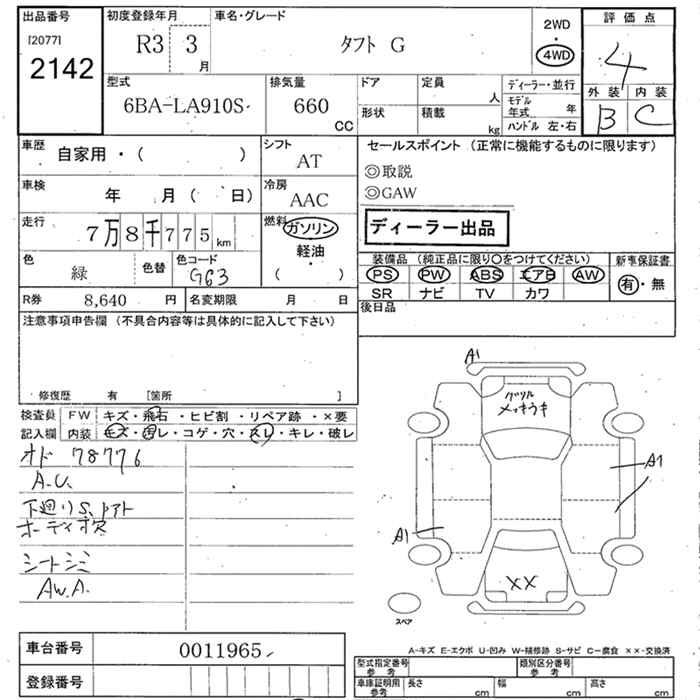 出品番号
[2077]
2142
初度登録年月
R3 3 月
車名・グレード
タフト G
2WD
4WD
評価点
4
外装 内装
B C
型式
6BA-LA910S
排気量
660
CC
ドア
形状
定員
人
積載
kg
ディーラー・並行
モデル年式 年
ハンドル 左・右
車歴
自家用・( )
シフト
AT
車検
年 月( 日)
冷房
AAC
走行
7万8千775km
燃料
ガソリン
軽油
・
( )
色
緑
色替
色コード
G63
R券 8,640 円
名変期限 月 日
セールスポイント (正常に機能するものに限ります)
◎取説
◎GAW
ディーラー出品
装備品 (純正品に限り○をつけてください)
PS PW ABS エアB AW
SR ナビ TV カワ
新車保証書
有・無
後日品
注意事項申告欄 (不具合内容等は具体的に記入して下さい)
修復歴 有 [箇所 ]
検査員 FW キズ・飛石・ヒビ割・リペア跡・×要
記入欄 内装 キズ・汚レ・コゲ・穴・スレ・キレ・破レ
オド 78776
A.U.
下廻りS、
オーディオ欠
シートシミ
AW.A.
A1
メッキウキ
A1
A1
XX
スペア
車台番号 0011965
登録番号
A-キズ E-エクボ U-凹み W-補修跡 S-サビ C-腐食 ××-交換済
型式指定番号 参考
類別区分番号 参考
車庫証明用 参考
長さ cm
幅 cm
高さ cm